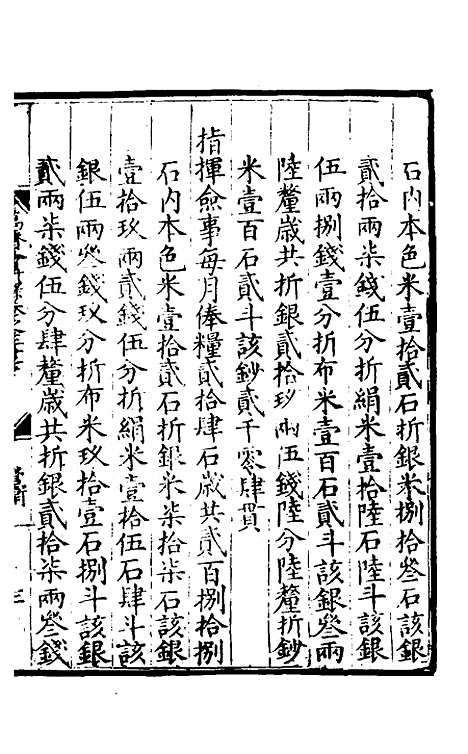 石内本色米壹拾貳石折銀米捌拾叄石該銀
貳拾兩柒錢伍分折絹米壹拾陸石陸斗該銀
伍兩捌錢壹分折布米壹百石貳斗該銀叄兩
陸釐歲共折銀貳拾玖兩伍錢陸分陸釐折鈔
米壹百石貳斗該鈔貳千零肆貫
指揮僉事每月俸糧貳拾肆石歲共貳百捌拾捌
石内本色米壹拾貳石折銀米柒拾柒石該銀
壹拾玖兩貳錢伍分折絹米壹拾伍石肆斗該
銀伍兩叄錢玖分折布米玖拾壹石捌斗該銀
貳兩柒錢伍分肆釐歲共折銀貳拾柒兩叄錢
萬曆會計錄卷之三十七
營衛
三